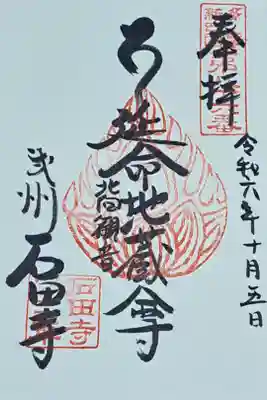 奉拝
令和六年十月五日
延命地蔵尊
北向観音
武州 石田寺
石田寺